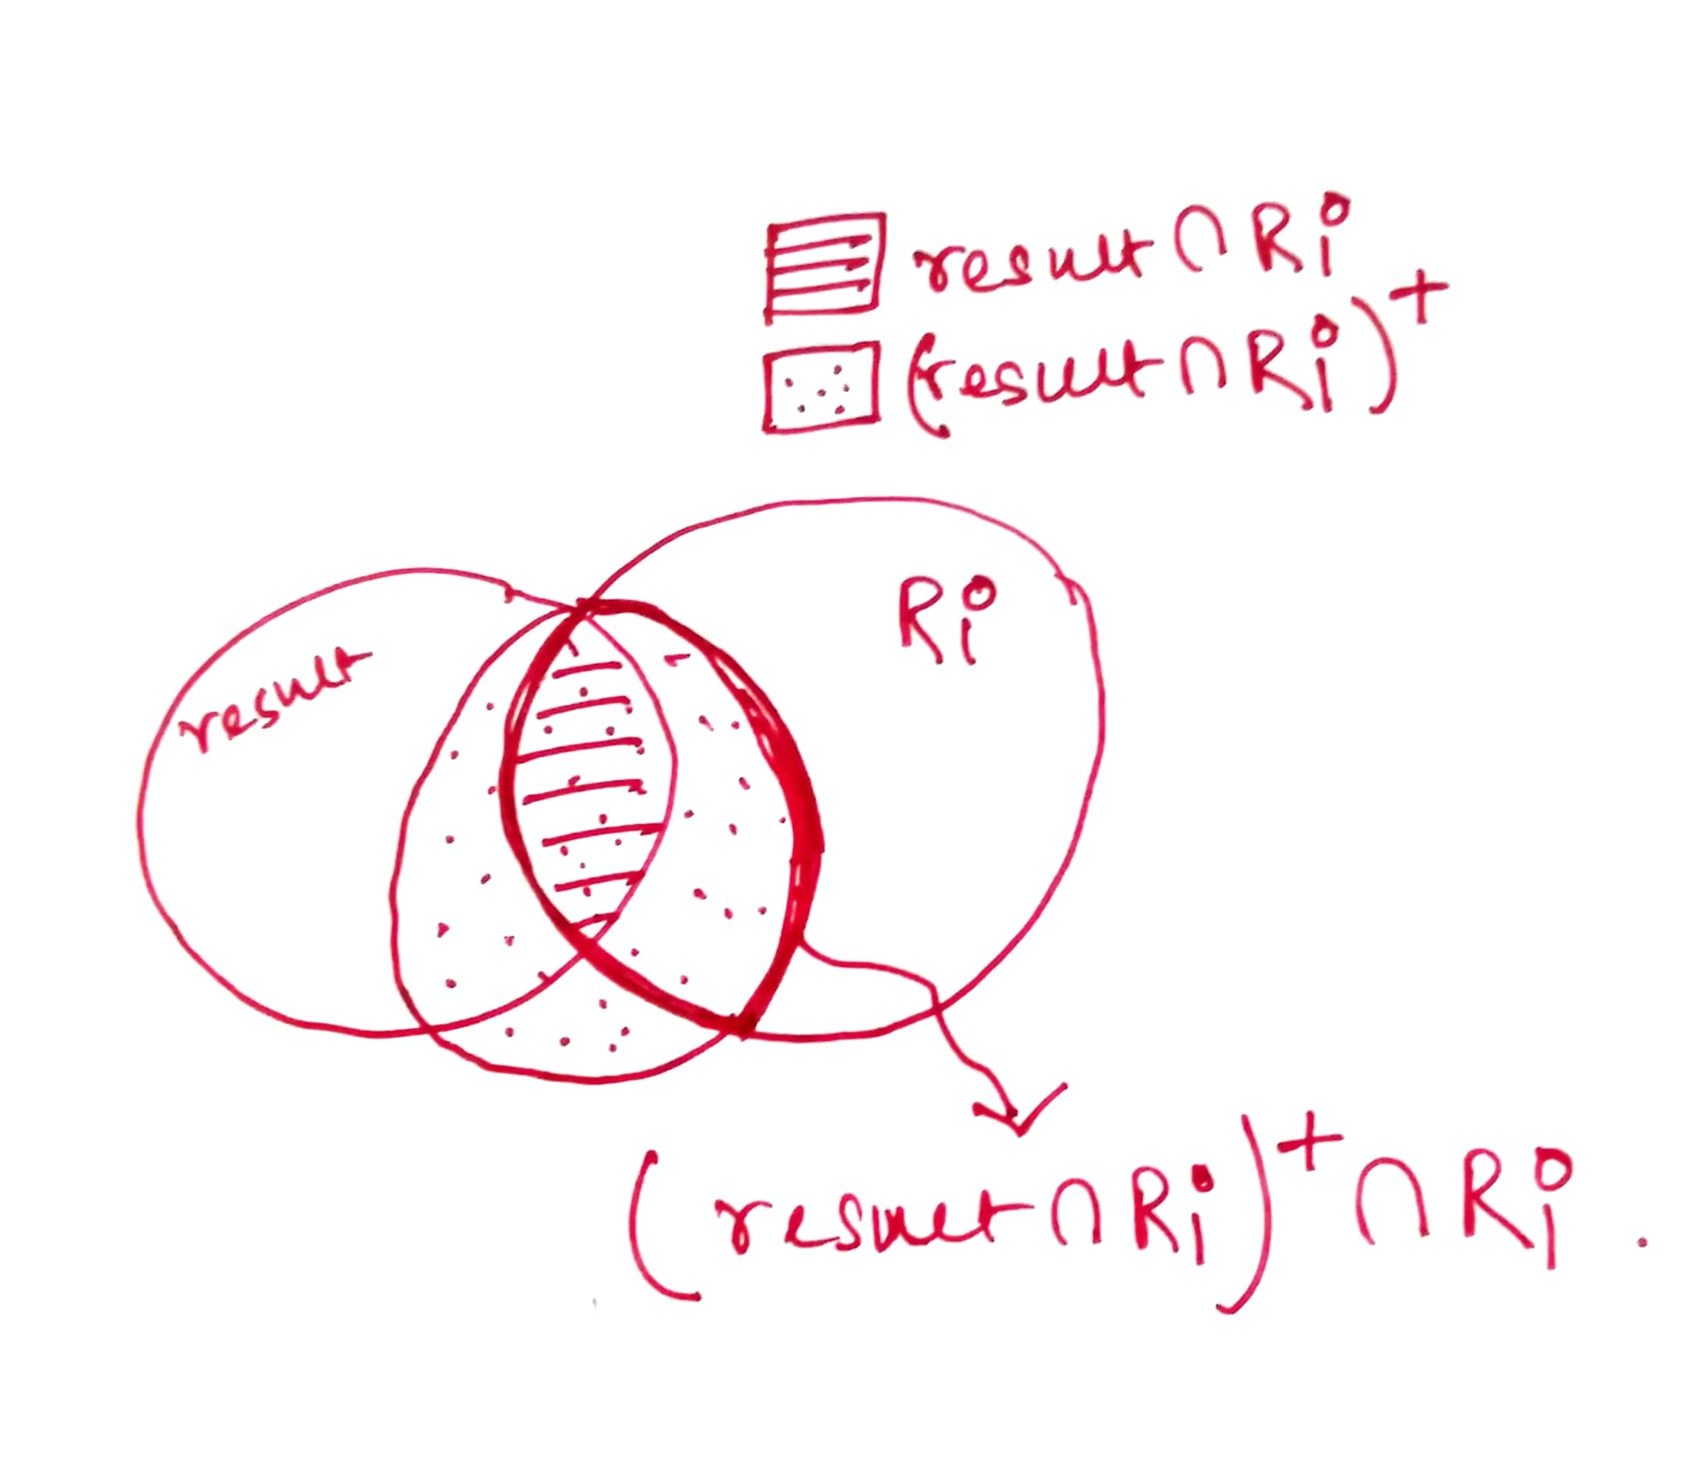 result ∩ Ri
(result ∩ Ri)+
Ri
result
(result ∩ Ri)+ ∩ Ri .